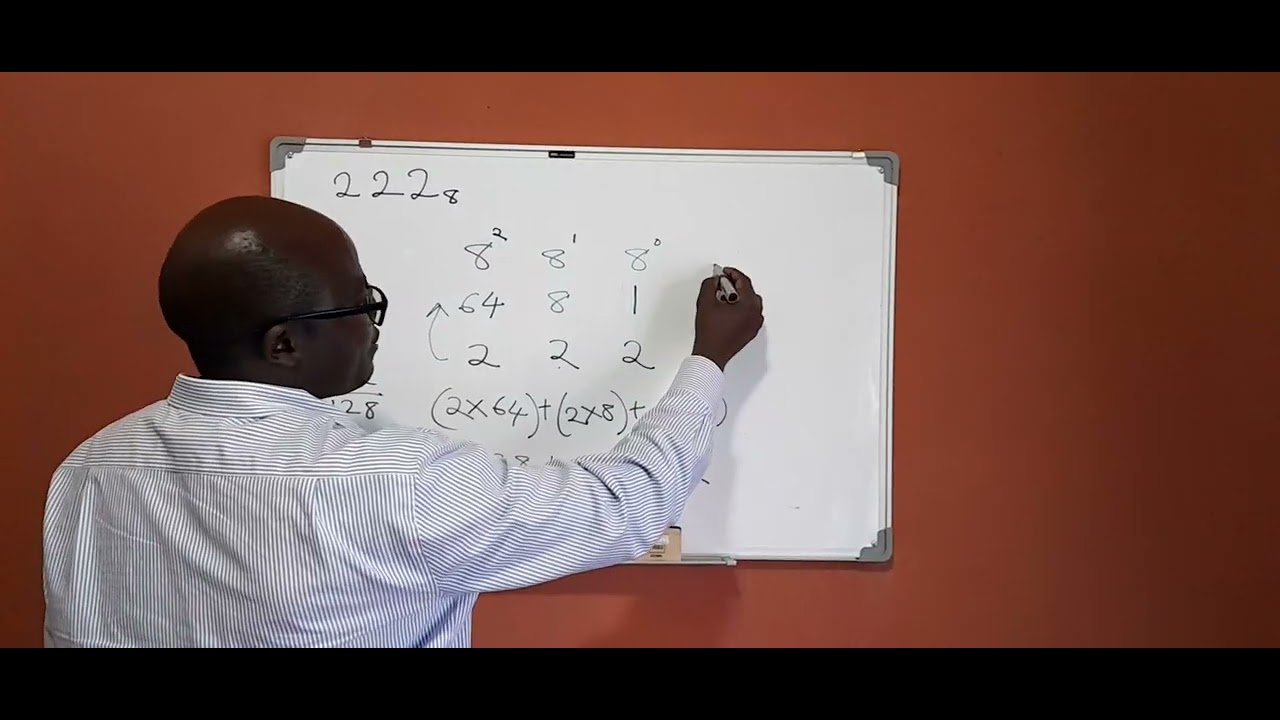 222₈
8² 8¹ 8⁰
64 8 1
2 2 2
128 (2×64)+(2×8)+ )
28